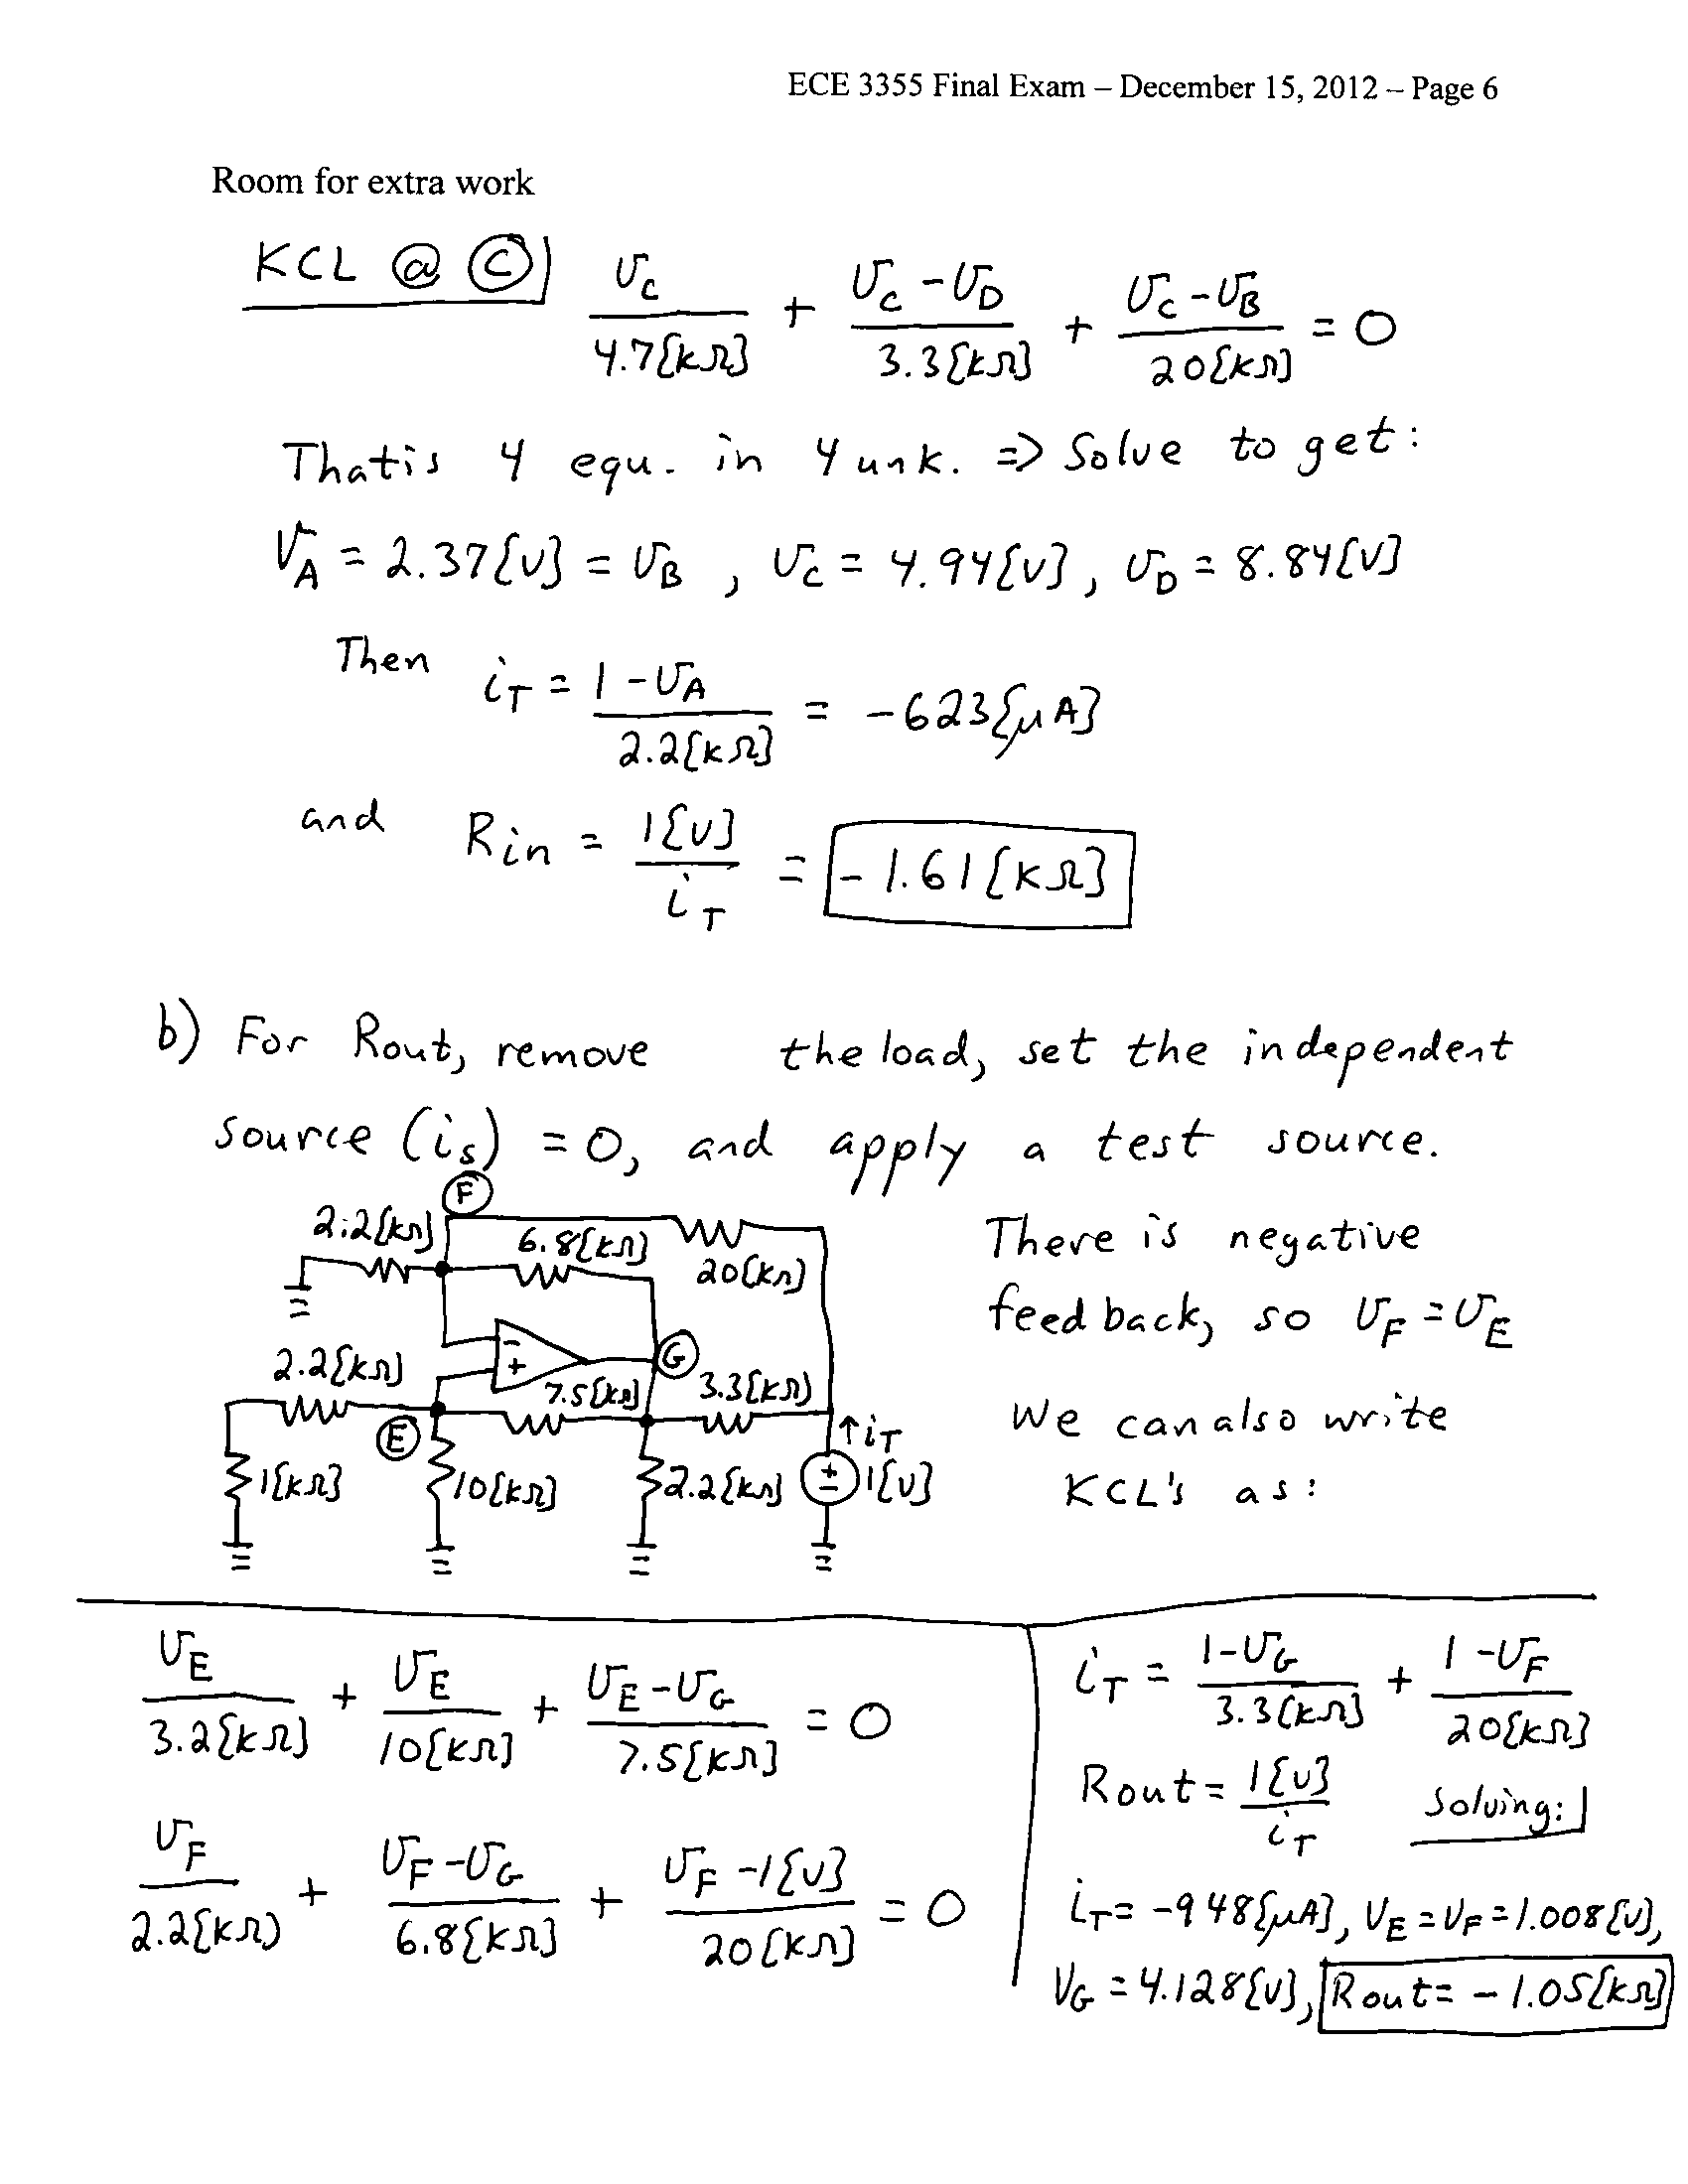 ECE 3355 Final Exam – December 15, 2012 – Page 6
Room for extra work
KCL @ Ⓒ v_C/4.7{kΩ} + (v_C - v_D)/3.3{kΩ} + (v_C - v_B)/20{kΩ} = 0
That is 4 equ. in 4 unk. => Solve to get:
v_A = 2.37{V} = v_B , v_C = 4.94{V}, v_D = 8.84{V}
Then i_T = (1 - v_A)/2.2{kΩ} = -623{μA}
and Rin = 1{V}/i_T = -1.61{kΩ}
b) For Rout, remove the load, set the independent
source (i_s) = 0, and apply a test source.
Ⓕ
2.2{kΩ}
6.8{kΩ}
20{kΩ}
There is negative
feedback, so v_F = v_E
- +
Ⓖ
2.2{kΩ}
7.5{kΩ}
3.3{kΩ}
Ⓔ
↑i_T
We can also write
1{kΩ}
10{kΩ}
2.2{kΩ}
+ - 1{V}
KCL's as:
v_E/3.2{kΩ} + v_E/10{kΩ} + (v_E - v_G)/7.5{kΩ} = 0
v_F/2.2{kΩ} + (v_F - v_G)/6.8{kΩ} + (v_F - 1{V})/20{kΩ} = 0
i_T = (1 - v_G)/3.3{kΩ} + (1 - v_F)/20{kΩ}
Rout = 1{V}/i_T Solving:
i_T = -948{μA}, v_E = v_F = 1.008{V},
v_G = 4.128{V}, Rout = -1.05{kΩ}